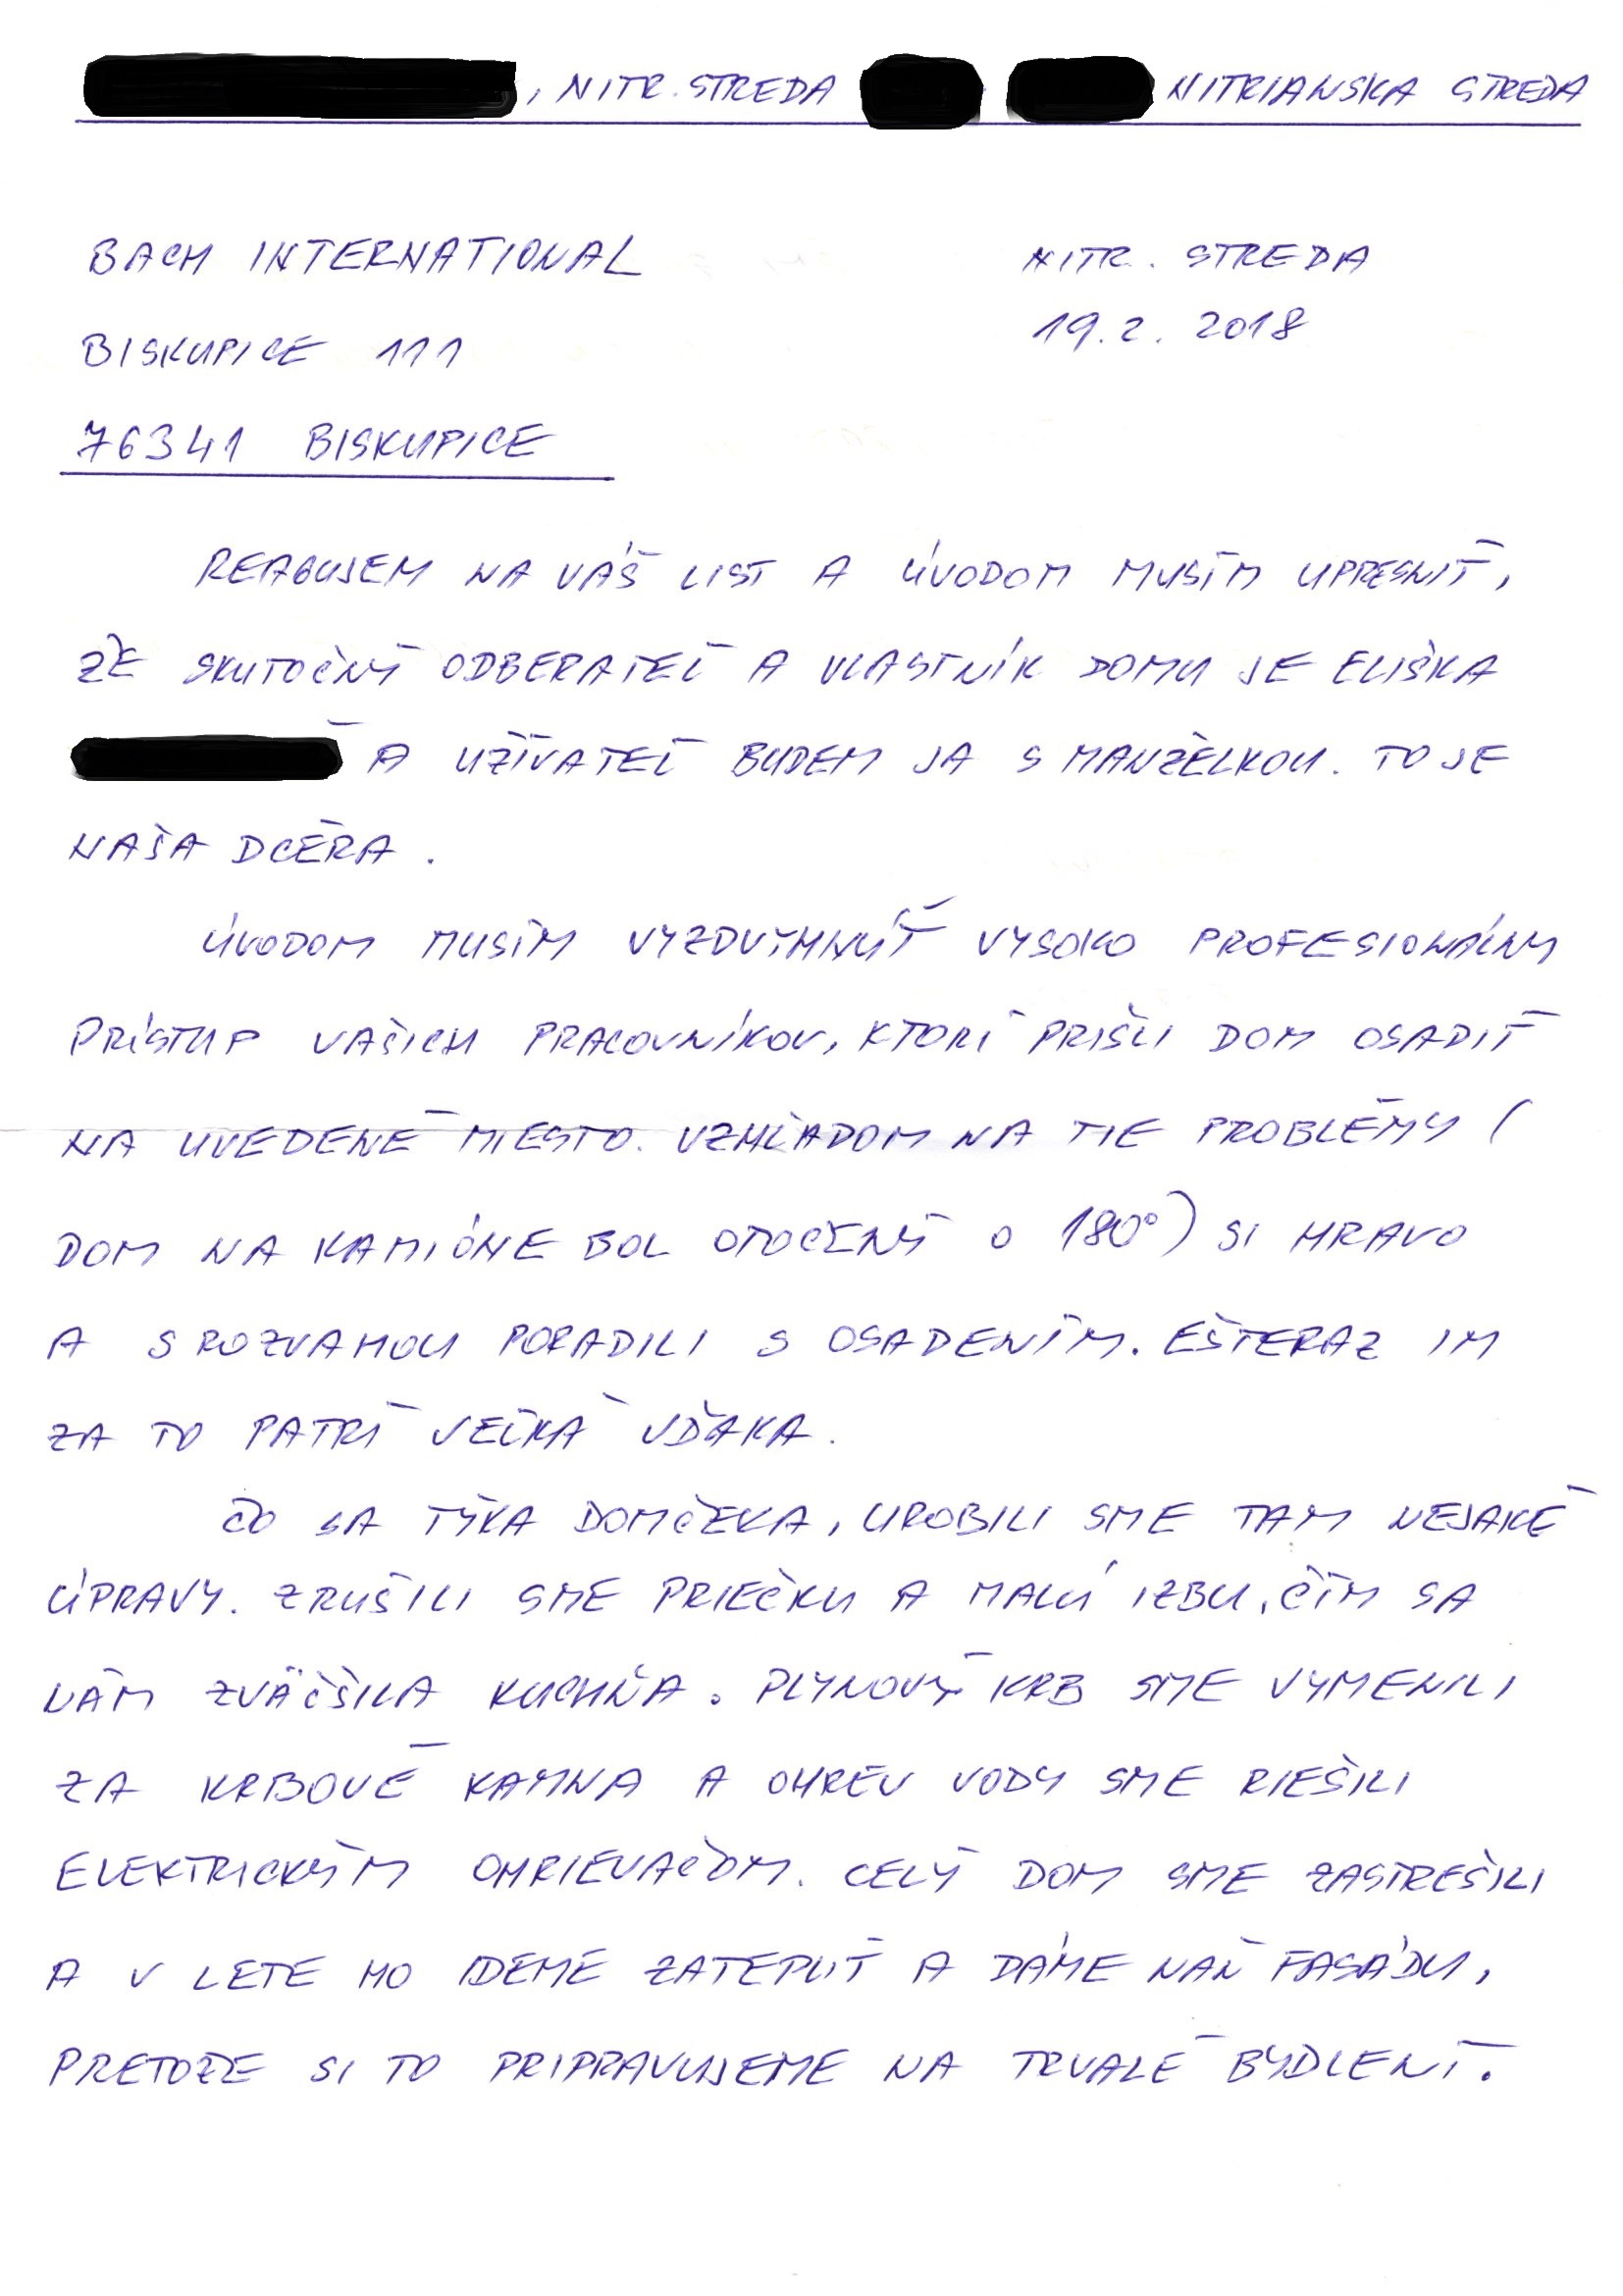 , NITR. STREDA NITRIANSKA STREDA
BACH INTERNATIONAL
NITR. STREDA
BISKUPICE 111
19.2.2018
76341 BISKUPICE
REAGUJEM NA VÁŠ LIST A ÚVODOM MUSÍM UPRESNIŤ,
ŽE SKUTOČNÝ ODBERATEĽ A VLASTNÍK DOMU JE ELIŠKA
A UŽÍVATEĽ BUDEM JA S MANŽELKOU. TO JE
NAŠA DCÉRA.
ÚVODOM MUSÍM VYZDVYHNÚŤ VYSOKO PROFESIONÁLNY
PRÍSTUP VAŠICH PRACOVNÍKOV, KTORÍ PRIŠLI DOM OSADIŤ
NA UVEDENÉ MIESTO. VZHĽADOM NA TIE PROBLÉMY (
DOM NA KAMIÓNE BOL OTOČENÝ O 180°) SI HRAVO
A S ROZVAHOU PORADILI S OSADENÍM. EŠTERAZ IM
ZA TO PATRÍ VEĽKÁ VĎAKA.
ČO SA TÝKA DOMČEKA, UROBILI SME TAM NEJAKÉ
ÚPRAVY. ZRUŠILI SME PRIEČKU A MALÚ IZBU, ČÍM SA
NÁM ZVÄČŠILA KUCHŇA. PLYNOVÝ KRB SME VYMENILI
ZA KRBOVÉ KAMNA A OHREV VODY SME RIEŠILI
ELEKTRICKÝM OHRIEVAČOM. CELÝ DOM SME ZASTREŠILI
A V LETE HO IDEME ZATEPLIŤ A DÁME NAŇ FASÁDU,
PRETOŽE SI TO PRIPRAVUJEME NA TRVALÉ BÝDLENÍ.